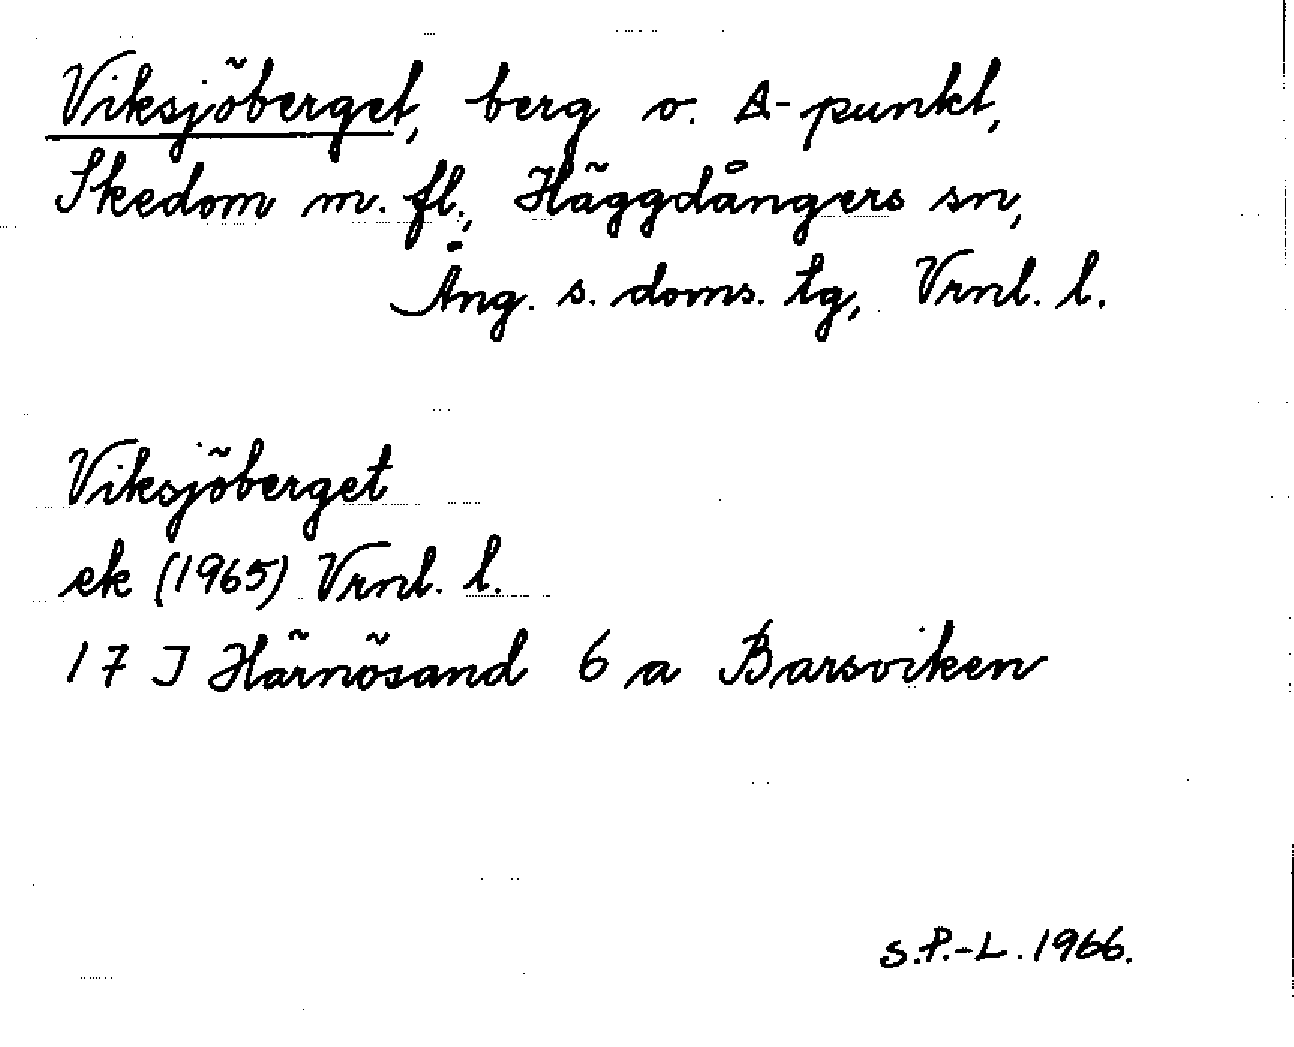 Viksjöberget, berg o. Δ-punkt,
Skedom m. fl., Häggdångers sn,
Ång. s. doms. tg, Vrnl. l.
Viksjöberget
ek (1965) Vrnl. l.
17 I Härnösand 6 a Barsviken
S.P.-L. 1966.